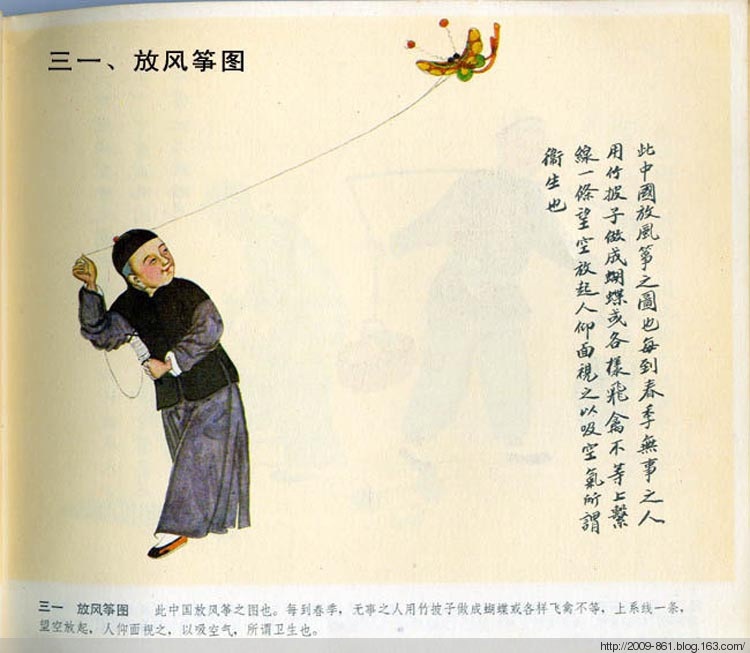 三一、放风筝图
此中國放風筝之圖也每到春季無事之人
用竹披子做成蝴蝶或各樣飛禽不等上繫
線一條望空放起人仰面視之以吸空氣所謂
衞生也
三一 放风筝图 此中国放风筝之图也。每到春季，无事之人用竹披子做成蝴蝶或各样飞禽不等，上系线一条，
望空放起，人仰面视之，以吸空气，所谓卫生也。
http://2009-861.blog.163.com/